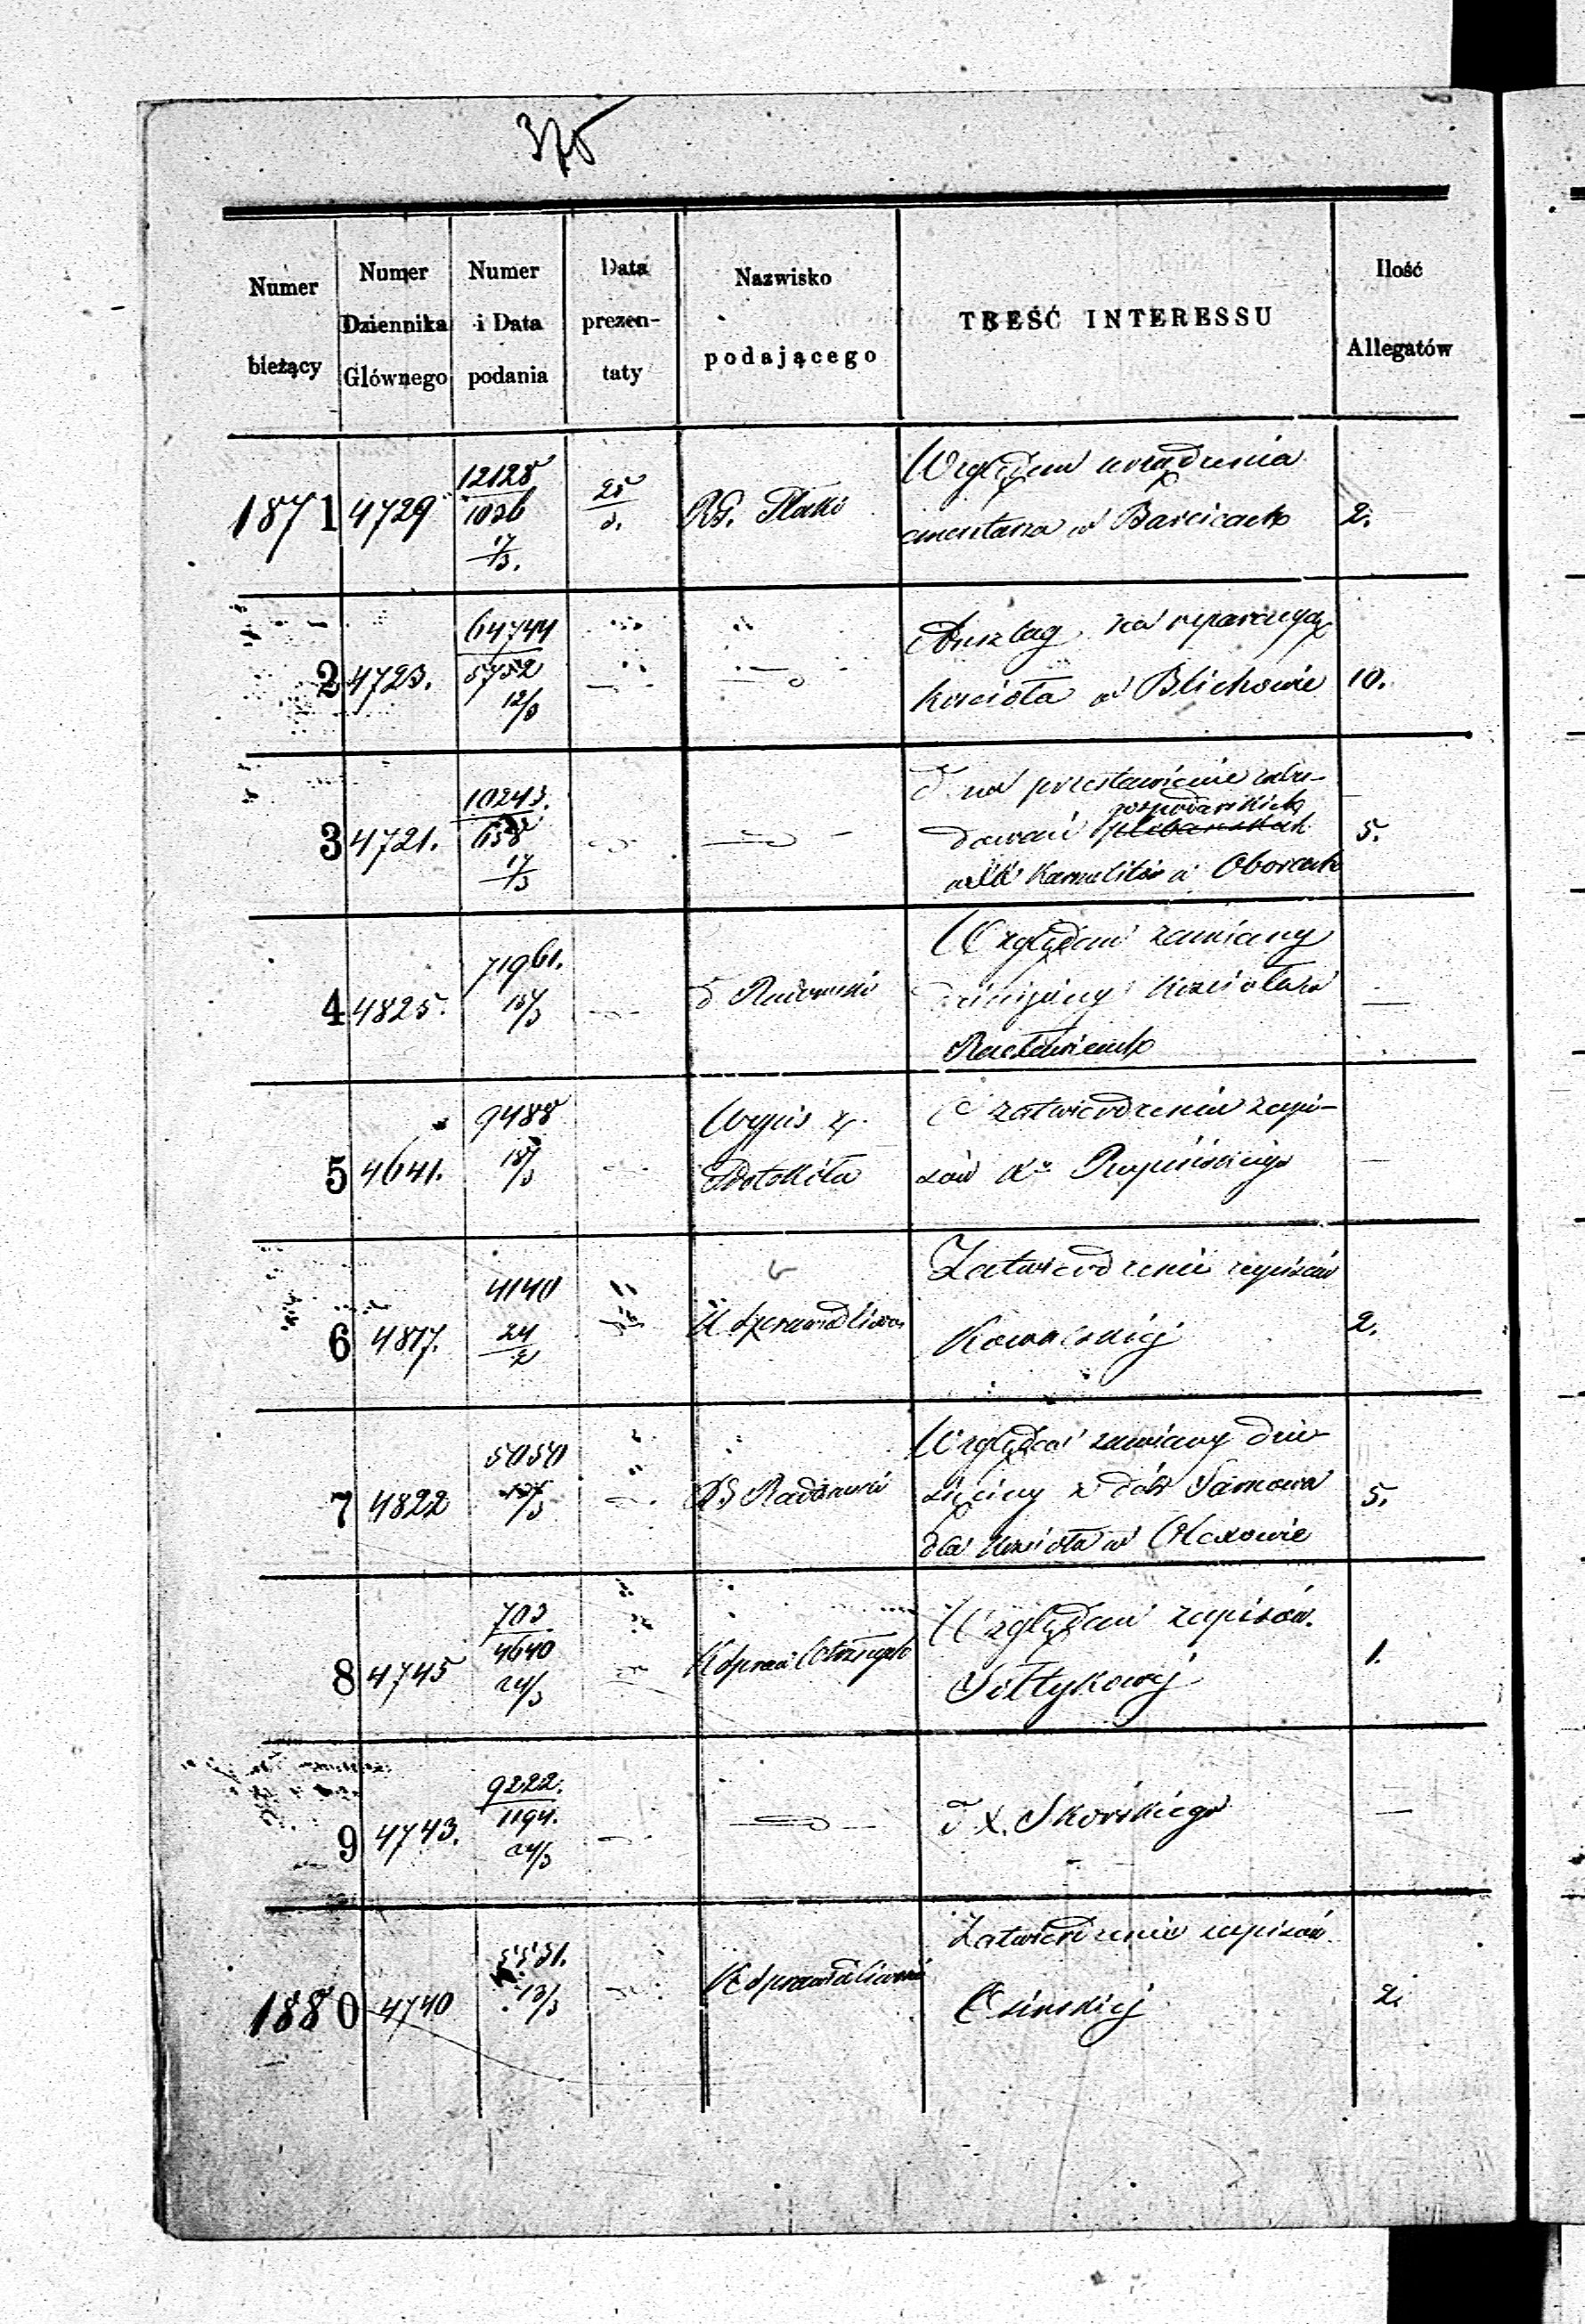 375
Numer bieżący
Numer Dziennika Głównego
Numer i Data podania
Data prezentaty
Nazwisko podającego
TREŚĆ INTERESSU
Ilość Allegatów
1871 4729 12128/1036 17/3. 25/3. RG. Płocki
Względem urządzenia
cmentarza w Barcicach 2.
2 4723. 64744/5752 12/3
Anszlag na reparacyą
kościoła w Blichowie 10.
3 4721. 10243./658 17/3
d na przestawienie zabu-
gospodarskich
dowań 5.
Karmelitów w Oborach
4 4825. 71961. 18/3 d Radomski
Względem zamiany
dziesięciny kościoła w
Racławicach
5 4641. 9488 18/3 Wypis z Protokółu
zatwierdzeniu zapi-
sów Rupińskiego
6 4817. 4140 24/2 K Sprawiedliwoś
Zatwierdzenie zapisów
Kowalskiej 2.
7 4822 5050 RG Radomski
Względem zamiany dzie-
sięciny z dóbr Sarnowa
dla kościoła w 5.
8 4745 703/4640 24/3
Względem zapisów
Sołtykowej 1.
9 4743. 9222./1194. 24/3
d X. Skórskiego
1880 4740 13/3 K Sprawiedliwości
Zatwierdzenie zapisów
Osinskiej 2.